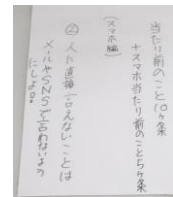 当たり前のこと10ヶ条
+スマホ当たり前のこと5ヶ条
(スマホ編)
② 人に直接言えないことは
メールやSNSで言わないよう
にしよう!